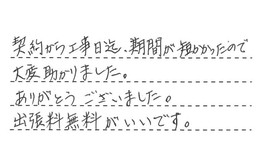 契約から工事日迄、期間が短かかったので
大変助かりました。
ありがとうございました。
出張料無料がいいです。